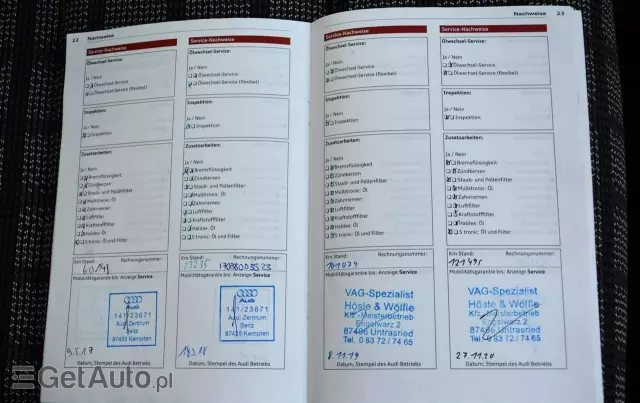 22 Nachweise
Service-Nachweise
Ölwechsel-Service:
Ja / Nein
Ölwechsel-Service
Ölwechsel-Service (flexibel)
Inspektion:
Ja / Nein
Inspektion
Zusatzarbeiten:
Ja / Nein
Bremsflüssigkeit
Zündkerzen
Staub- und Pollenfilter
Multitronic: Öl
Zahnriemen
Luftfilter
Kraftstofffilter
Haldex: Öl
S tronic: Öl und Filter
Km Stand: Rechnungsnummer:
60141
Mobilitätsgarantie bis: Anzeige Service
Audi
141/23671
Audi-Zentrum
Seitz
87435 Kempten
9.5.17
Datum, Stempel des Audi Betriebs
Service-Nachweise
Ölwechsel-Service:
Ja / Nein
Ölwechsel-Service
Ölwechsel-Service (flexibel)
Inspektion:
Ja / Nein
Inspektion
Zusatzarbeiten:
Ja / Nein
Bremsflüssigkeit
Zündkerzen
Staub- und Pollenfilter
Multitronic: Öl
Zahnriemen
Luftfilter
Kraftstofffilter
Haldex: Öl
S tronic: Öl und Filter
Km Stand: Rechnungsnummer:
Mobilitätsgarantie bis: Anzeige Service
Audi
141/23671
Audi-Zentrum
Seitz
87435 Kempten
Datum, Stempel des Audi Betriebs
Nachweise 23
Service-Nachweise
Ölwechsel-Service:
Ja / Nein
Ölwechsel-Service
Ölwechsel-Service (flexibel)
Inspektion:
Ja / Nein
Inspektion
Zusatzarbeiten:
Ja / Nein
Bremsflüssigkeit
Zündkerzen
Staub- und Pollenfilter
Multitronic: Öl
Zahnriemen
Luftfilter
Kraftstofffilter
Haldex: Öl
S tronic: Öl und Filter
Km Stand: Rechnungsnummer:
101074
Mobilitätsgarantie bis: Anzeige Service
VAG-Spezialist
Höste & Wölfle
Kfz.-Meisterbetrieb
Engelwarz 2
87496 Untrasried
Tel. 0 83 72 / 74 65
8.11.19
Datum, Stempel des Audi Betriebs
Service-Nachweise
Ölwechsel-Service:
Ja / Nein
Ölwechsel-Service
Ölwechsel-Service (flexibel)
Inspektion:
Ja / Nein
Inspektion
Zusatzarbeiten:
Ja / Nein
Bremsflüssigkeit
Zündkerzen
Staub- und Pollenfilter
Multitronic: Öl
Zahnriemen
Luftfilter
Kraftstofffilter
Haldex: Öl
S tronic: Öl und Filter
Km Stand: Rechnungsnummer:
121495
Mobilitätsgarantie bis: Anzeige Service
VAG-Spezialist
Höste & Wölfle
Kfz.-Meisterbetrieb
Engelwarz 2
87496 Untrasried
Tel. 0 83 72 / 74 65
27.11.20
Datum, Stempel des Audi Betriebs
GetAuto.pl